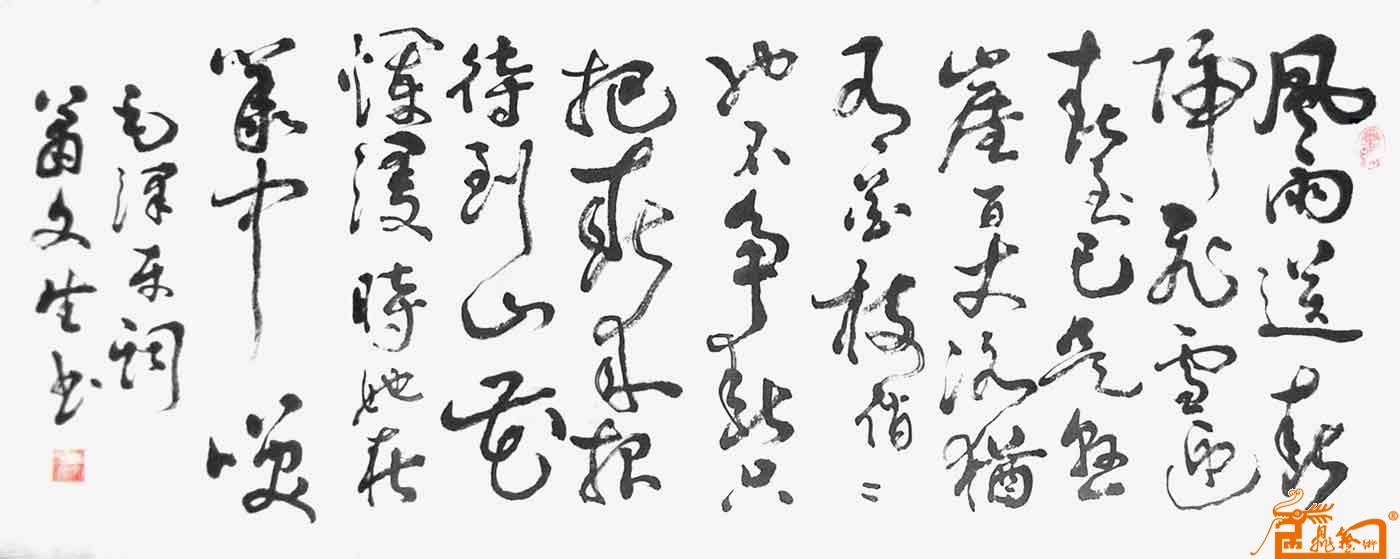 風雨送春
歸飛雪迎
春至已是懸
崖百丈冰猶
有花枝俏〻
也不爭春只
把春來報
待到山花
爛漫時她在
叢中咲
毛澤東詞
文生書